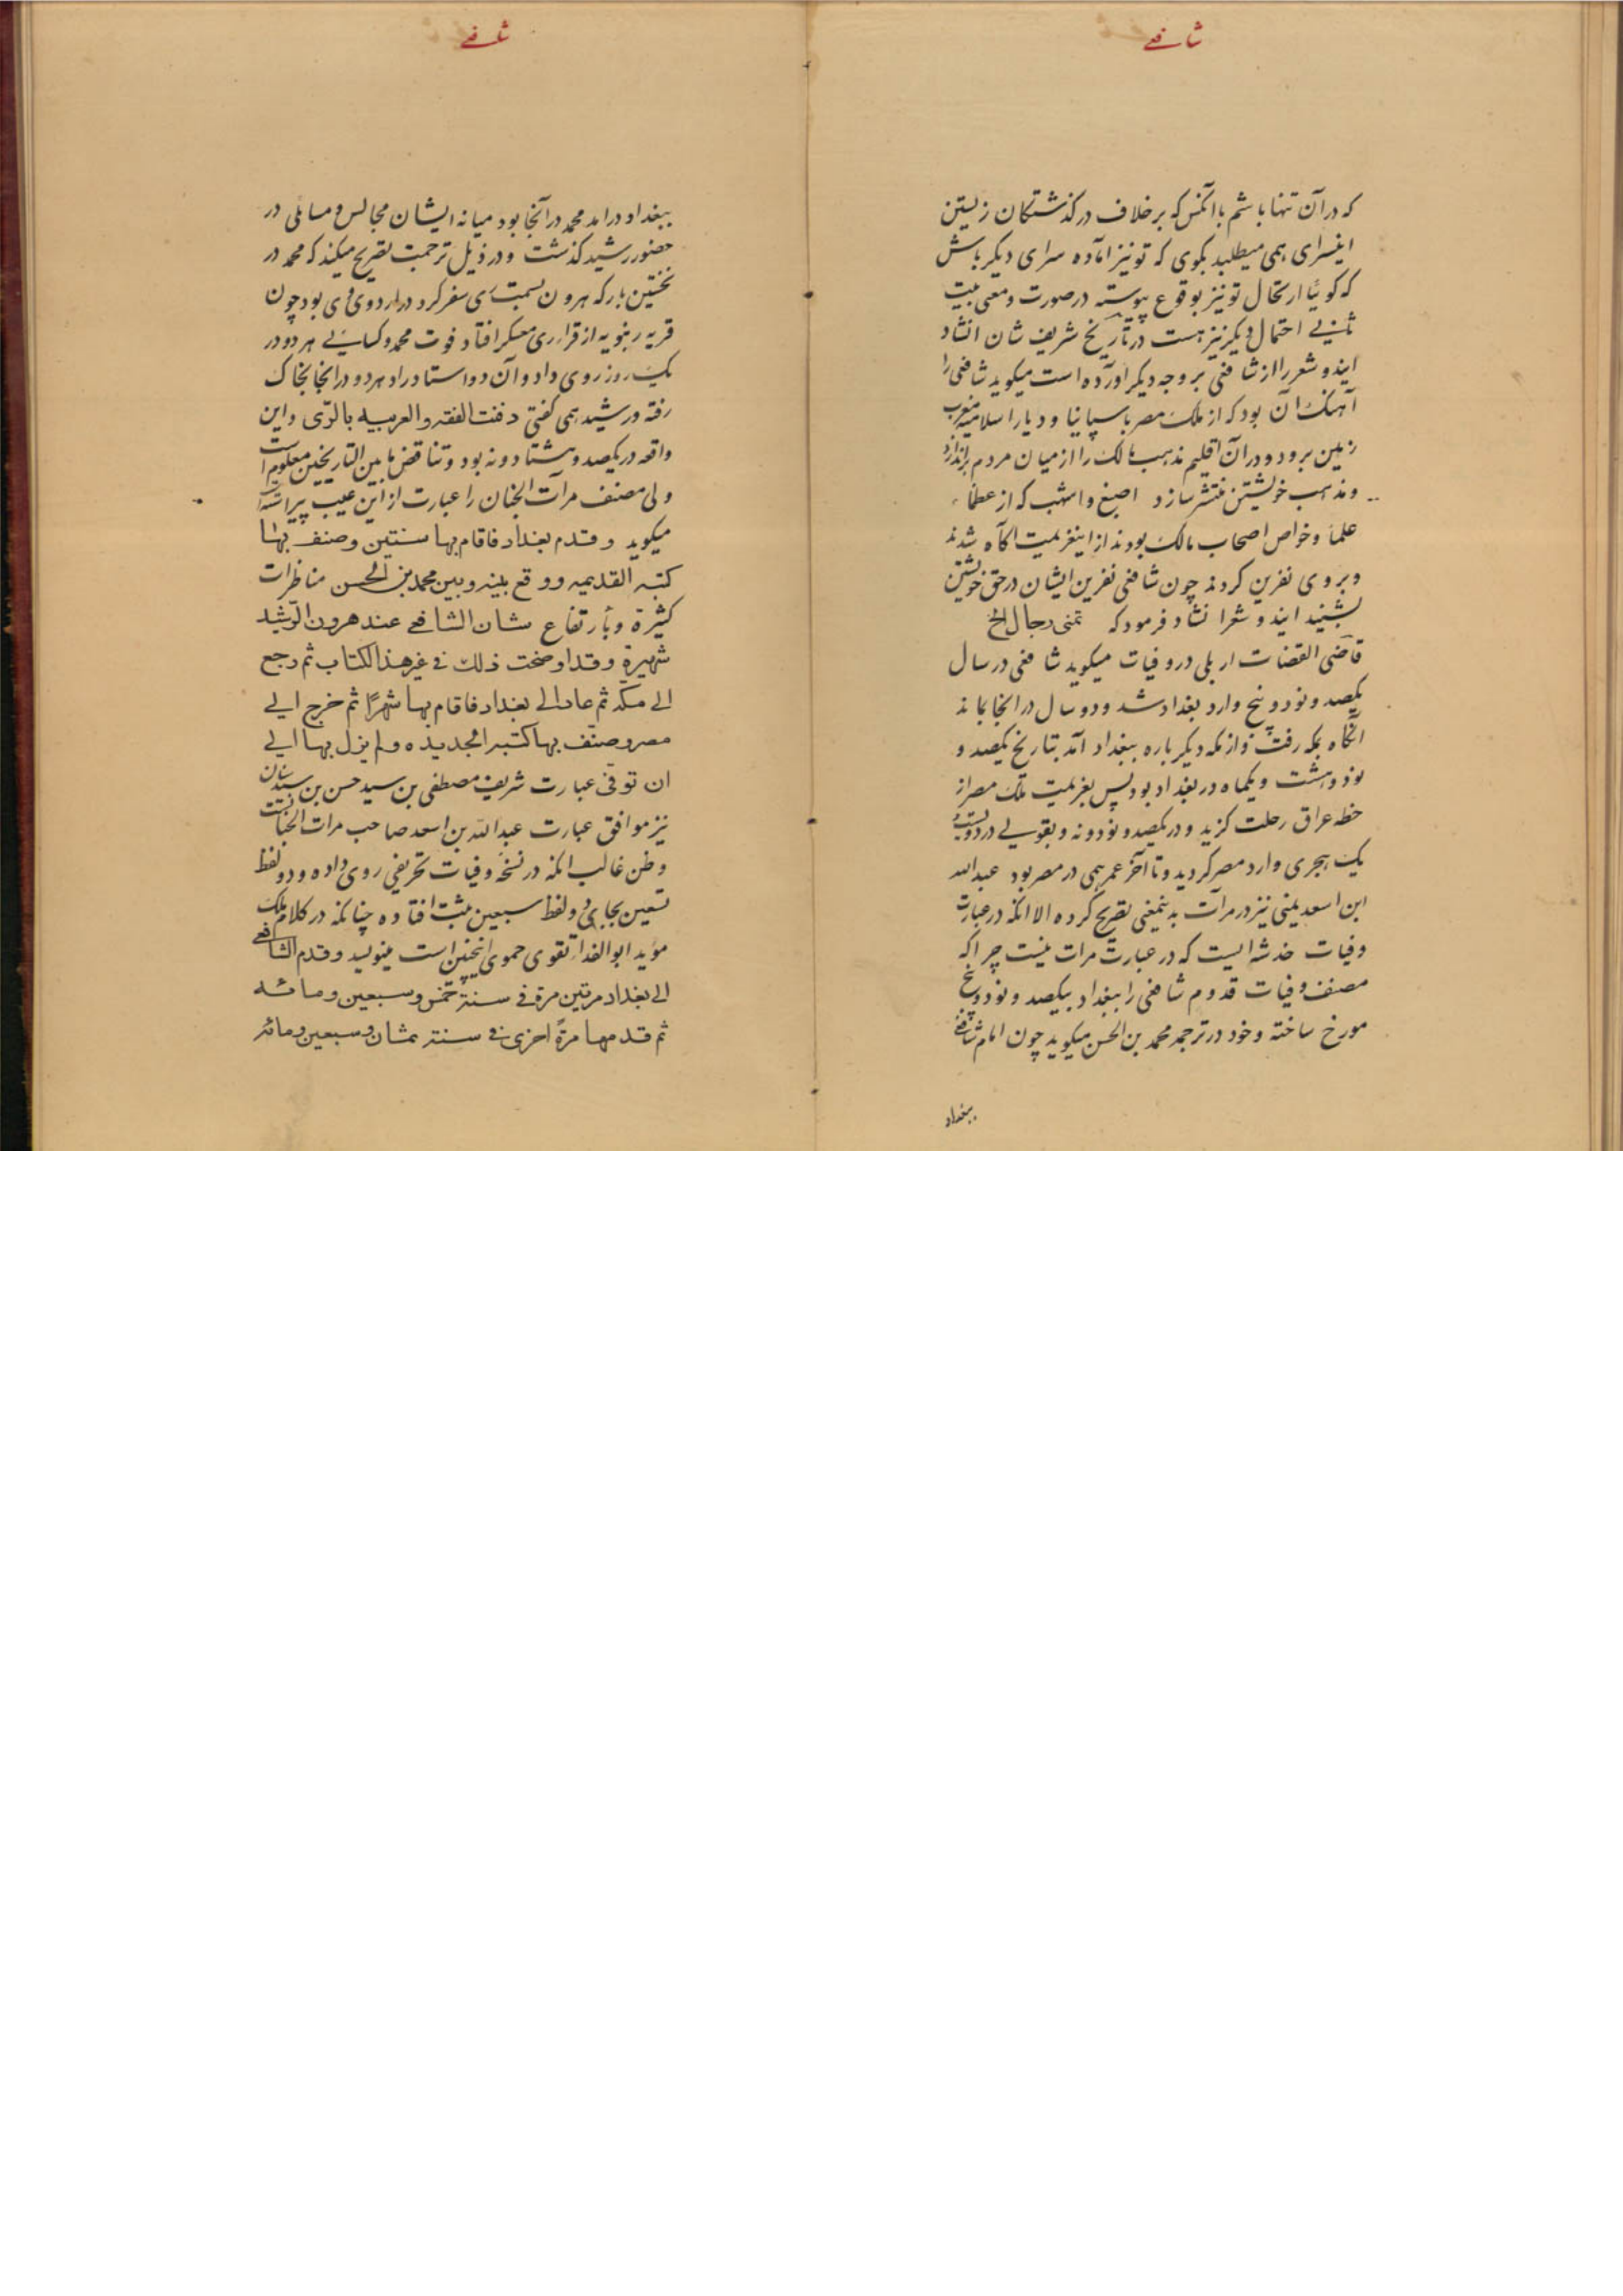 شافعے
که در آن تنها باشم با آنکس که بر خلاف درکذشتکان زیستن
اینسرای همی میطلبد بکوی که تو نیز اماده سرای دیکر باش
که کویّا ارتحال تو نیز بوقوع پیوسته در صورت و معنی بیت
ثانے احتمال دیکر نیز هست در تاریخ شریف شان انشاد
ایندو شعر را از شافعی بر وجه دیکر آورده است میکوید شافعی را
آهنک آن بود که از ملک مصر باسپانیا و دیار اسلامیه مغرب
زمین برود و در آن اقلیم مذهب مالک را از میان مردم براندازد
و مذهب خویشتن منتشر سازد اصبغ و اشهب که از عظماء
علما و خواص اصحاب مالک بودند از اینعزیمت آکاه شدند
و بر وی نفرین کردند چون شافعی نفرین ایشان در حق خویشتن
بشنید ایندو شعر انشاد فرمود که تمنی رجال الخ
قاضی القضات اربلی در وفیات میکوید شافعی در سال
یکصد و نود و پنج وارد بغداد شد و دو سال در انجا بماند
آنکاه بمکه رفت و از مکه دیکر باره ببغداد آمد بتاریخ یکصد و
نود و هشت و یکماه در بغداد بود پس بعزیمت ملک مصر از
خطه عراق رحلت کزید و در یکصد و نود و نه و بقولے در دویست و
یک هجری وارد مصر کردید و تا آخر عمر همی در مصر بود عبدالله
ابن اسعد یمنی نیز در مرآت بدینمعنی تصریح کرده الا انکه در عبارت
وفیات خدشه ایست که در عبارت مرات نیست چرا که
مصنف وفیات قدوم شافعی را ببغداد بیکصد و نود و پنج
مورخ ساخته و خود در ترجمه محمد بن الحسن میکوید چون امام شافعے
ببغداد
شافعے
ببغداد درامد محمد در آنجا بود میانه ایشان مجالس و مسائلی در
حضور رشید کذشت و در ذیل ترجمت تصریح میکند که محمد در
نخستین بار که هرون بسمت ری سفر کرد در اردوی وی بود چون
قریه رنبویه از قرار ری معسکر افتاد فوت محمد و کسائے هر دو در
یک روز روی داد و آن دو استاد راد هر دو در انجا بخاک
رفته و رشید همی کفتی دفنت الفقه و العربیه بالرّی و این
واقعه در یکصد و هشتاد و نه بود و تناقض ما بین التاریخین معلوم است
ولی مصنف مرآت الجنان را عبارت از این عیب پیراسته
میکوید و قدم بغداد فاقام بها سنتین و صنف بها
کتبه القدیمه و وقع بینه و بین محمد بن الحسن مناظرات
کثیرة و بارتفاع شان الشافعے عند هرون الرّشید
شهیرة و قد اوضحت ذلک فے غیر هذا الکتاب ثم رجع
الے مکة ثم عاد الے بغداد فاقام بها شهرًا ثم خرج الے
مصر و صنّف بها کتبه الجدیده و لم یزل بها الے
ان توفی عبارت شریف مصطفی بن سید حسن بن سید سنان
نیز موافق عبارت عبدالله بن اسعد صاحب مرات الجنانست
و ظن غالب انکه در نسخه وفیات تحریفی روی داده و دو لفظ
تسعین بجای دو لفظ سبعین ثبت افتاده چنانکه در کلام ملک
مؤید ابوالفدا تقوی حموی اینچنین است مینویسد و قدم الشافعے
الے بغداد مرتین مرة فے سنة خمس و سبعین و مائه
ثم قدمها مرةً اخری فے سنة ثمان و سبعین و مائه